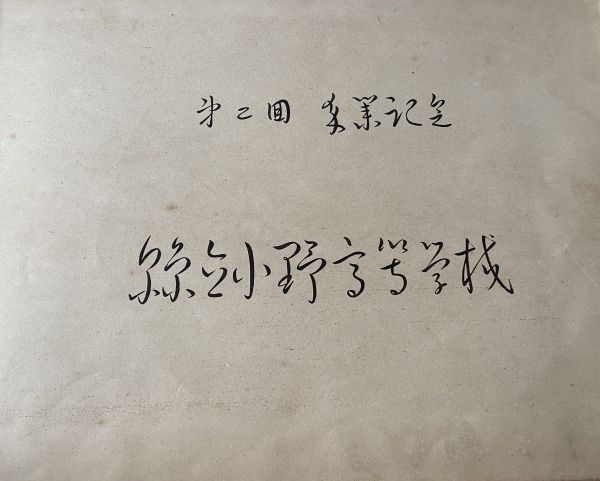 第二回 卒業記念
縣立小野高等学校